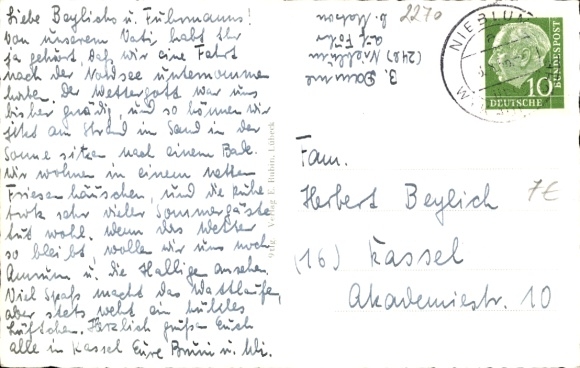 Liebe Beylichs u. Fuhrmanns!
Von unserem Vati habt Ihr
ja gehört, daß wir eine Fahrt
nach der Nordsee unternommen
haben. Der Wettergott war uns
bisher gnädig, und so können wir
jetzt am Strand im Sand in der
Sonne sitzen, nach einem Bade.
Wir wohnen in einem netten
Friesenhäuschen, und die Ruhe
trotz sehr vieler Sommergäste
tut wohl. Wenn das Wetter
so bleibt, wollen wir uns noch
Amrum u. die Halligen ansehen.
Viel Spaß macht das Wattlaufen,
aber stets weht ein kühles
Lüftchen. Herzlich grüßen Euch
alle in Kassel Eure u.
Verlag E. Rubin, Lübeck
(24b) Nieblum
auf Föhr
2270
NIEBLUM
DEUTSCHE
BUNDESPOST
10
Fam.
Herbert Beylich
7€
(16) Kassel
Akademiestr. 10